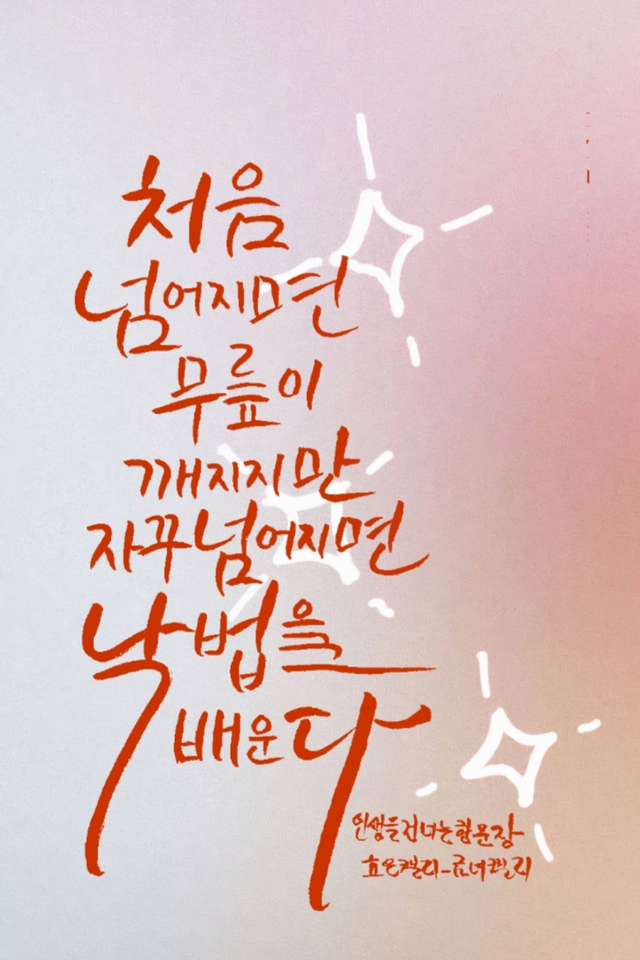 처음
넘어지면
무릎이
깨지지만
자꾸넘어지면
낙법을
배운다
인생을건너는한문장